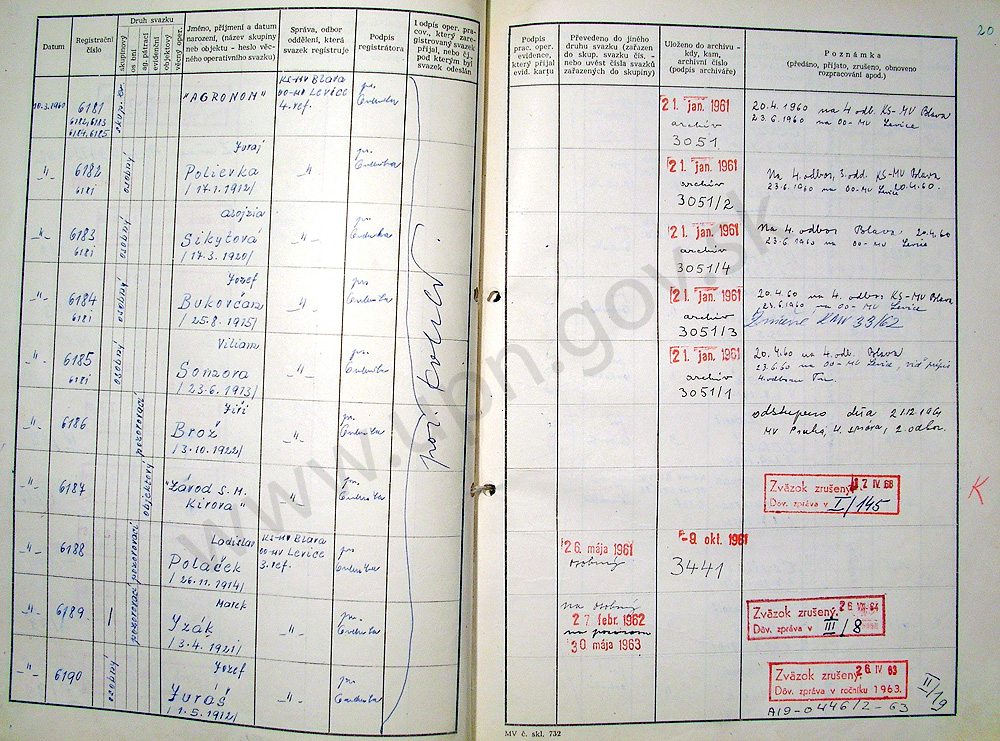 Datum
Registrační číslo
Druh svazku
skupinový
osobní
ag. pátrací
evidenční
objektový
věcný oper.
Jméno, příjmení a datum
narození, (název skupiny
neb objektu - heslo věc-
ného operativního svazku)
Správa, odbor
oddělení, která
svazek registruje
Podpis
registrátora
Podpis oper. pra-
cov., který zare-
gistrovaný svazek
přijal, nebo čj.,
pod kterým byl
svazek odeslán
Podpis
prac. oper.
evidence,
který přijal
evid. kartu
Převedeno do jiného
druhu svazku (zařazen
do skup. svazku čís.
nebo uvést čísla svazků
zařazených do skupiny)
Uloženo do archivu -
kdy, kam,
archivní číslo
(podpis archiváře)
Poznámka
(předáno, přijato, zrušeno, obnoveno
rozpracování apod.)
20
10.3.1960
6181
6182, 6183
6184, 6185
"AGRONOM"
KS-MV Blava
OO-MV Levice
4. ref.
21. jan. 1961
archív
3051
20.4.1960 na 4 odb. KS-MV Blava
23.6.1960 na OO-MV Levice
-"-
6182
6181
osobný
Juraj
Polievka
/17.1.1912/
-"-
21. jan. 1961
archív
3051/2
Na 4. odbor, 3. odd. KS-MV Blava
23.6.1960 na OO-MV Levice 20.4.60.
-"-
6183
6181
osobný
Alojzia
Sikytová
/17.3.1920/
-"-
21. jan. 1961
archív
3051/4
Na 4. odbor Blava, 20.4.60
23.6.1960 na OO-MV Levice
-"-
6184
6181
osobný
Jozef
Bukovčan
/25.8.1915/
-"-
21. jan. 1961
archív
3051/3
20.4.60 na 4. odbor KS-MV Blava
23.6.1960 na OO-MV Levice
33/62
-"-
6185
6181
osobný
Viliam
Sonzora
/23.6.1913/
-"-
21. jan. 1961
archív
3051/1
20.4.60 na 4. odb. Blava
23.6.60 na OO-MV Levice, viď
4. odboru
-"-
6186
pozorovací
Jiří
Brož
/3.10.1922/
-"-
odstúpeno dňa 21.12.1961
MV Praha, 4. správa, 2 odbor.
-"-
6187
objektový
"Závod S. M.
Kirova"
-"-
Zväzok zrušený 17 IV. 68
Dôv. zpráva v I/145
K
-"-
6188
pozorovací
Ladislav
Poláček
/26.11.1914/
KS-MV Blava
OO-MV Levice
3. ref.
26. mája 1961
osobný
-9. okt. 1961
3441
-"-
6189
pozorovací
Marek
Yzák
/3.4.1921/
-"-
na osobný
27 febr. 1962
na pozorov
30 mája 1963
Zväzok zrušený. 26 VIII. 64
Dôv. zpráva v III/8
-"-
6190
osobný
Jozef
Juráš
/1.5.1912/
-"-
Zväzok zrušený. 26. IV 63
Dôv. zpráva v ročníku 1963.
A19-0446/2-63
II/19
MV č. skl. 732
www.upn.gov.sk